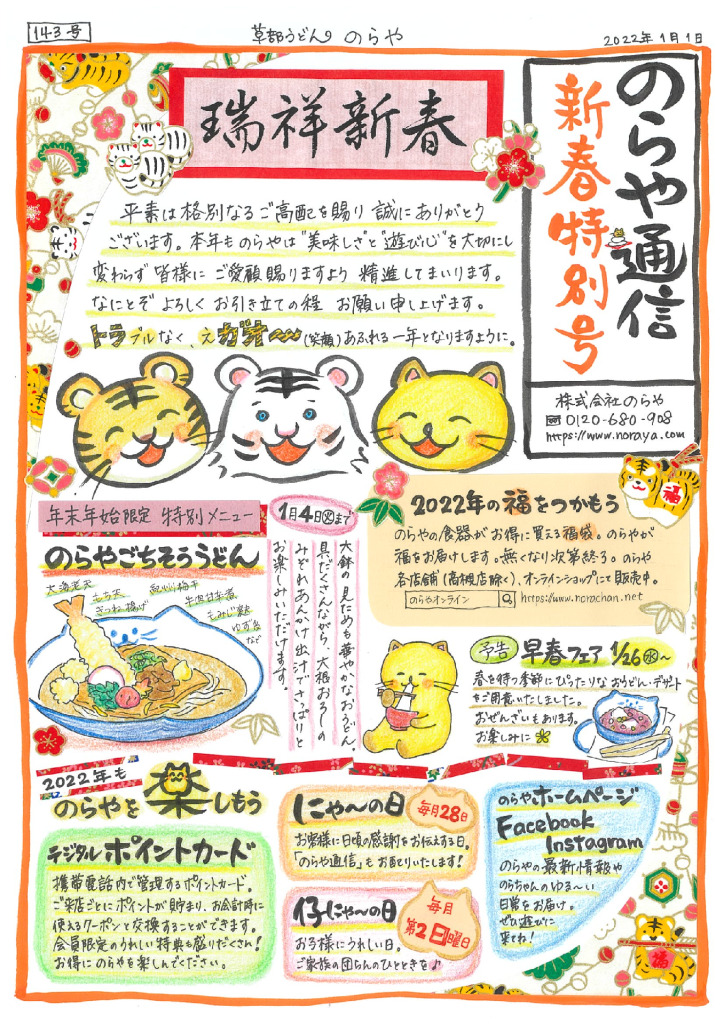 143号
草部うどん のらや
2022年1月1日
瑞祥新春
のらや通信
新春特別号
平素は格別なるご高配を賜り 誠にありがとう
ございます。本年も のらやは"美味しさ"と"遊び心"を大切にし
変わらず 皆様に ご愛顧賜りますよう 精進してまいります。
なにとぞ よろしく お引き立ての程 お願い申し上げます。
トラブルなく、えガオ〜(笑顔)あふれる一年となりますように。
株式会社のらや
0120-680-908
https://www.noraya.com
年末年始限定 特別メニュー
1月4日(火)まで
のらやごちそううどん
大海老天
もち天
きつね揚げ
紀州梅干
牛肉甘辛煮
もみじ麩
ゆず香
など
大鉢の見ためも華やかなおうどん。
具だくさんながら、大根おろしの
みぞれあんかけ出汁でさっぱりと
お楽しみいただけます。
福
2022年の福をつかもう
のらやの食器がお得に買える福袋。のらやが
福をお届けします。無くなり次第終了。のらや
各店舗(高槻店除く)、オンラインショップにて販売中。
のらやオンライン
https://www.norachan.net
予告 早春フェア 1/26(水)〜
春を待つ季節にぴったりなおうどん・デザート
をご用意いたしました。
おぜんざいもあります。
お楽しみに
2022年も
のらやを楽しもう
デジタルポイントカード
携帯電話内で管理するポイントカード。
ご来店ごとにポイントが貯まり、お会計時に
使えるクーポンと交換することができます。
会員限定のうれしい特典も盛りだくさん!
お得に のらやを楽しんでください。
にゃ〜の日
毎月28日
お客様に日頃の感謝をお伝えする日。
「のらや通信」もお配りいたします!
仔にゃ〜の日
毎月
第2日曜日
お子様にうれしい日。
ご家族の団らんのひとときを♪
のらやホームページ
Facebook
Instagram
のらやの最新情報や
のらちゃんのゆる〜い
日常をお届け。
ぜひ遊びに
来てね!
福